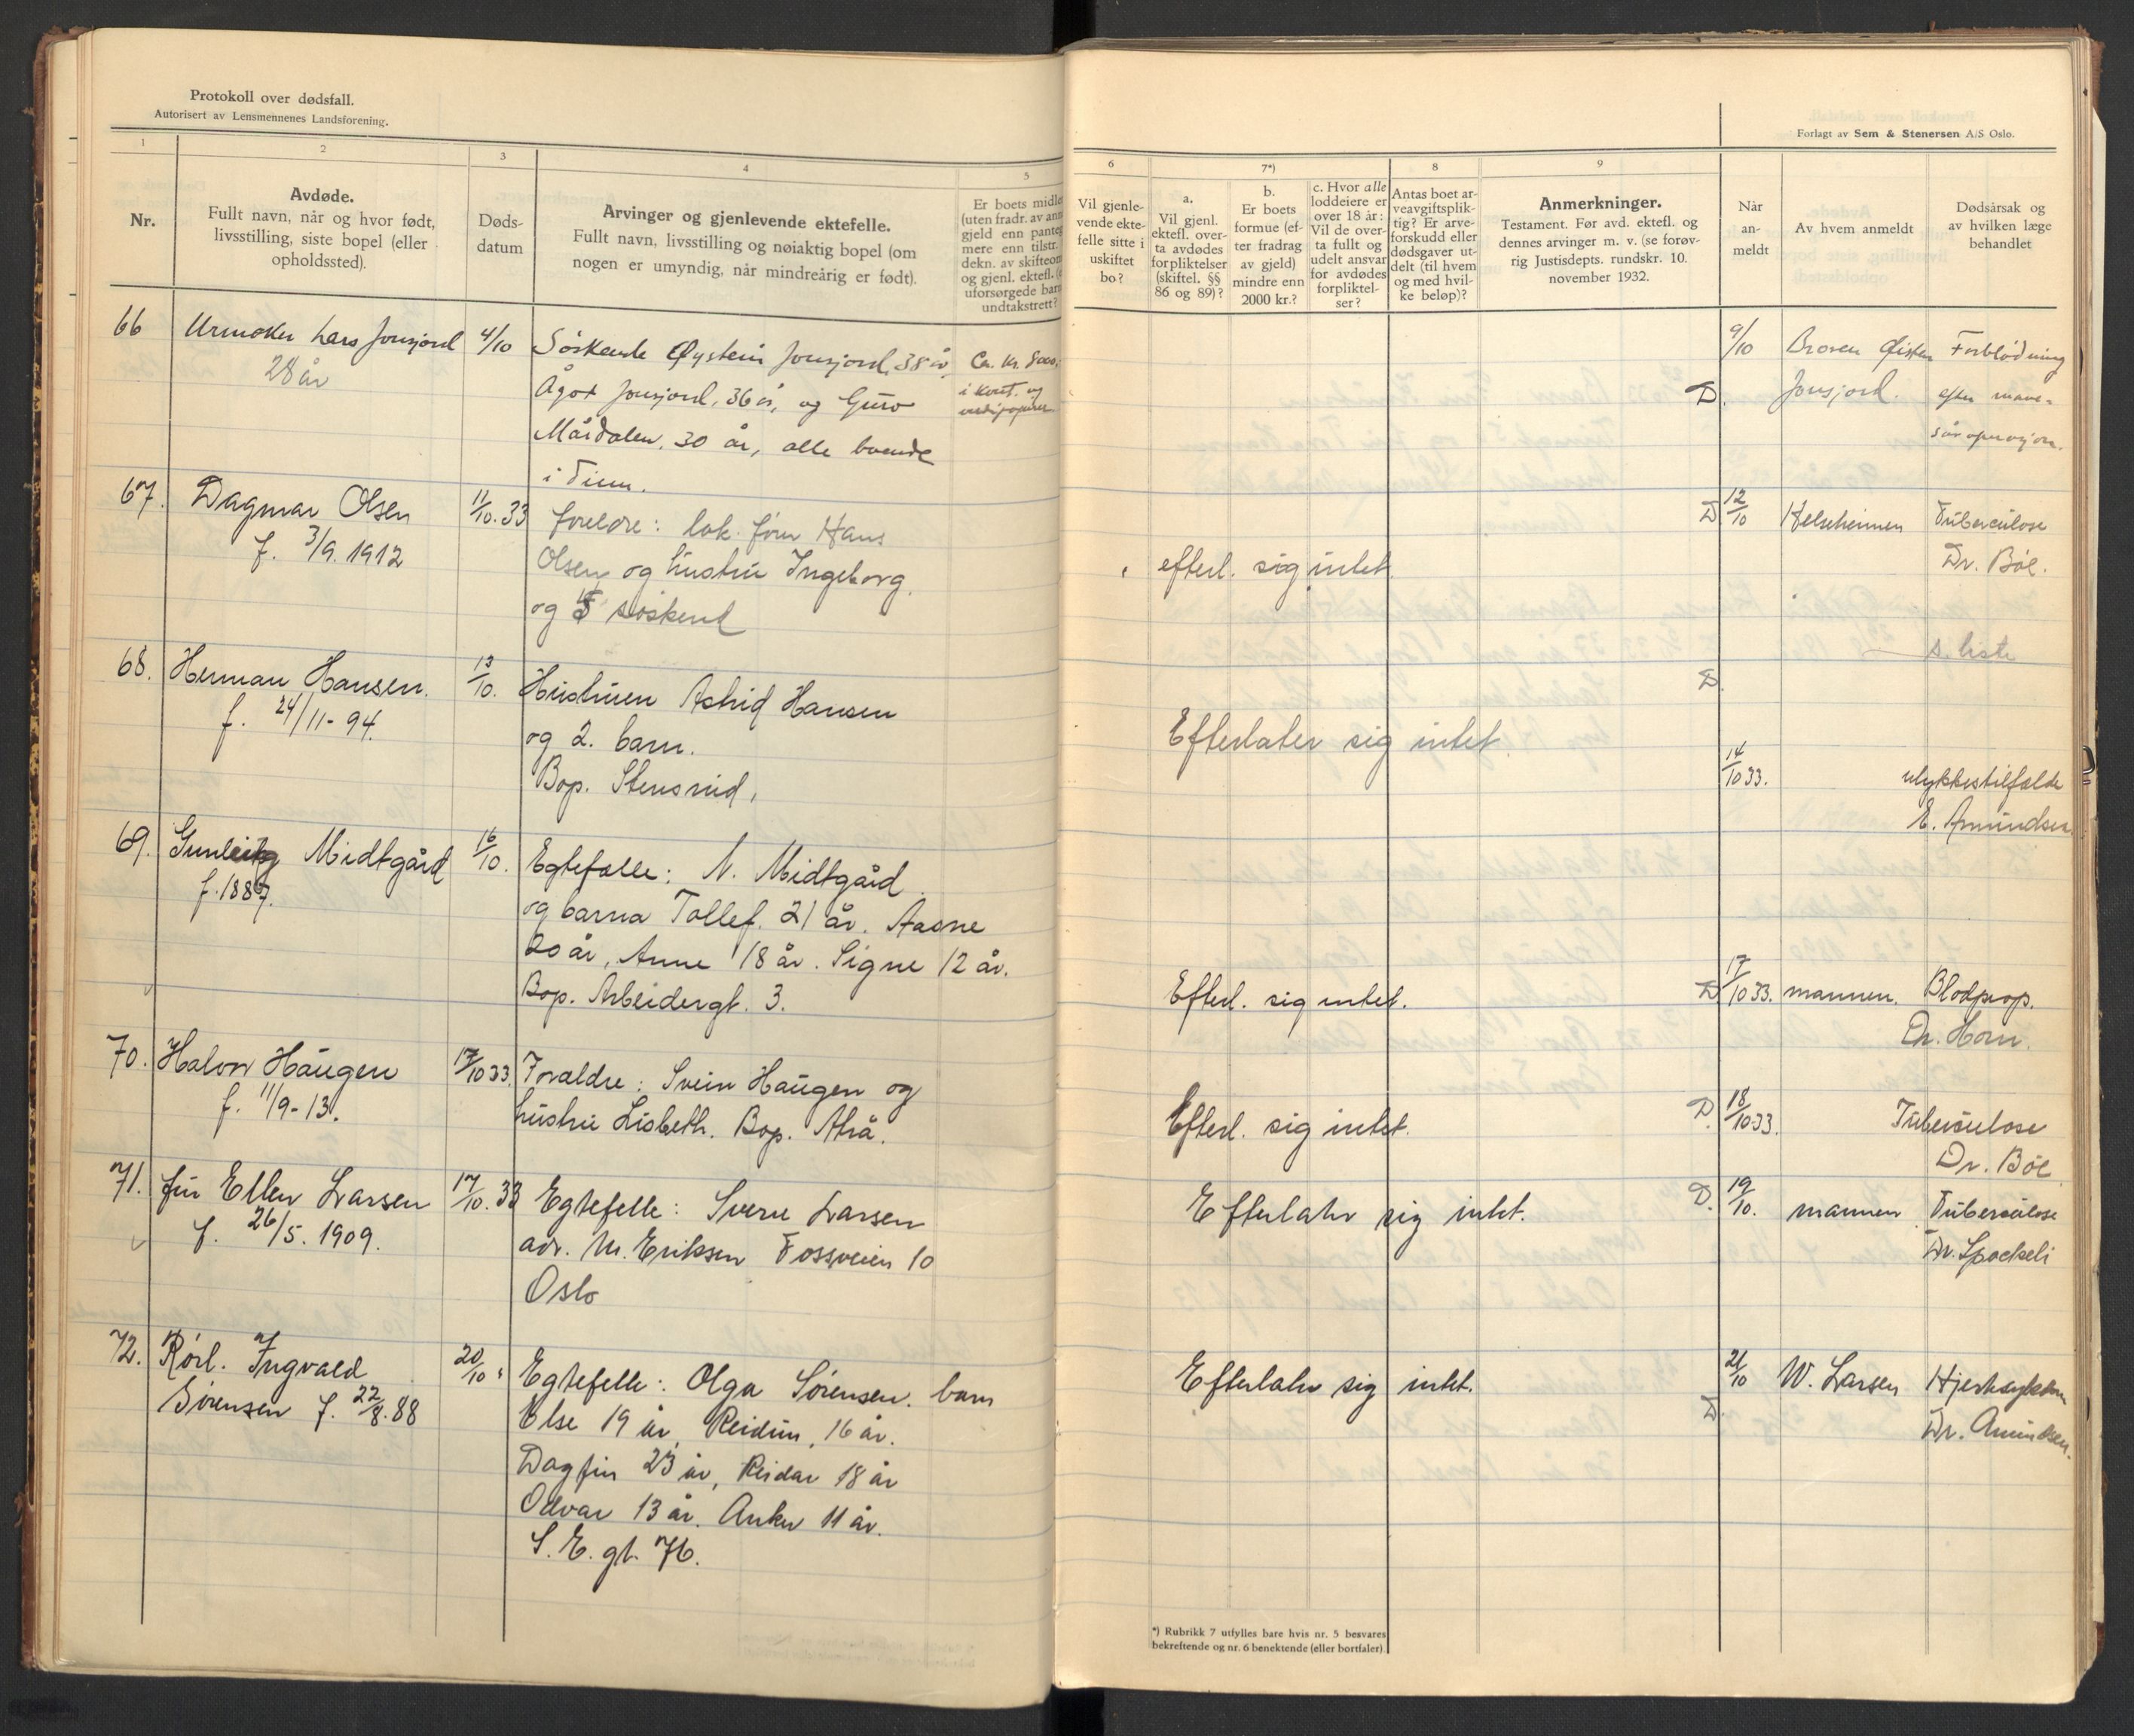 Protokoll over dødsfall.
Autorisert av Lensmennenes Landsforening.
1
2
3
4
5
Nr.
Avdøde.
Fullt navn, når og hvor født,
livsstilling, siste bopel (eller
opholdssted).
Døds-
datum
Arvinger og gjenlevende ektefelle.
Fullt navn, livsstilling og nøiaktig bopel (om
nogen er umyndig, når mindreårig er født).
Er boets midle
(uten fradr. av ann
gjeld enn panteg
mere enn tilstr.
dekn. av skifteom
og gjenl. ektefl. (
uforsørgede barn
undtakstrett?
66
Urmaker Lars Jonsjord
28 år
4/10
Søskende Øystein Jonsjord, 38 år,
Ågot Jonsjord, 36 år, og Guro
Mårdalen, 30 år, alle boende
i Tinn.
Ca. kr.
i kont. og
verdipapirer
67.
Dagmar Olsen
f. 3/9. 1912
11/10. 33
foreldre: lok. fører Hans
Olsen og hustru Ingeborg.
og 5 søskend
68.
Herman Hansen.
f. 24/11- 94.
13/10.
Hustruen Astrid Hansen
og 2. barn.
Bop. Stensrud,
69.
Gunleig Midtgård
f. 1887.
16/10.
Egtefælle: N. Midtgård.
og barna Tollef. 21 år. Aasne
20 år, Anne 18 år. Signe 12 år.
Bop. Arbeidergt. 3.
70.
Halvor Haugen
f. 11/9- 13.
17/10 33.
Forældre: Svein Haugen og
hustru Lisbeth. Bop. Atrå.
71.
fru Ellen Larsen
f. 26/5. 1909.
17/10. 33
Egtefelle: Sverre Larsen
adr. M. Eriksen Fossveien 10
Oslo
72.
Rørl. Ingvald
Sørensen f. 22/8. 88
20/10
Egtefelle: Olga Sørensen. barn
Else 19 år, Reidun, 16 år.
Dagfin 23 år, Reidar 18 år
Odvar 13 år. Anker 11 år.
S. E. gt. 76.
Forlagt av Sem & Stenersen A/S Oslo.
6
7*)
8
9
Vil gjenle-
vende ekte-
felle sitte i
uskiftet
bo?
a.
Vil gjenl.
ektefl. over-
ta avdødes
forpliktelser
(skiftel. §§
86 og 89)?
b.
Er boets
formue (ef-
ter fradrag
av gjeld)
mindre enn
2000 kr.?
c. Hvor alle
loddeiere er
over 18 år:
Vil de over-
ta fullt og
udelt ansvar
for avdødes
forpliktel-
ser?
Antas boet ar-
veavgiftsplik-
tig? Er arve-
forskudd eller
dødsgaver ut-
delt (til hvem
og med hvil-
ke beløp)?
Anmerkninger.
Testament. Før avd. ektefl. og
dennes arvinger m. v. (se forøv-
rig Justisdepts. rundskr. 10.
november 1932.
Når
an-
meldt
Av hvem anmeldt
Dødsårsak og
av hvilken læge
behandlet
D.
9/10
Broren Øisten
Jonsjord.
Forblødning
efter mave-
sår operasjon.
efterl. sig intet.
D.
12/10
Helseheimen
Tuberculose
Dr. Bøe.
s. liste
D.
Efterlater sig intet
14/10 33.
ulykkestilfælde
E. Amundsen
Efterl. sig intet.
D.
17/10 33.
mannen.
Blodprop.
Dr. Horn.
Efterl. sig intet.
D.
18/10 33.
Tuberculose
Dr. Bøe
Efterlater sig intet.
D.
19/10.
mannen
Tuberculose
Dr. Spockeli
Efterlater sig intet.
D.
21/10
W. Larsen
Hjertesykdom
Dr. Amundsen.
*) Rubrikk 7 utfylles bare hvis nr. 5 besvares
bekreftende og nr. 6 benektende (eller bortfaler).